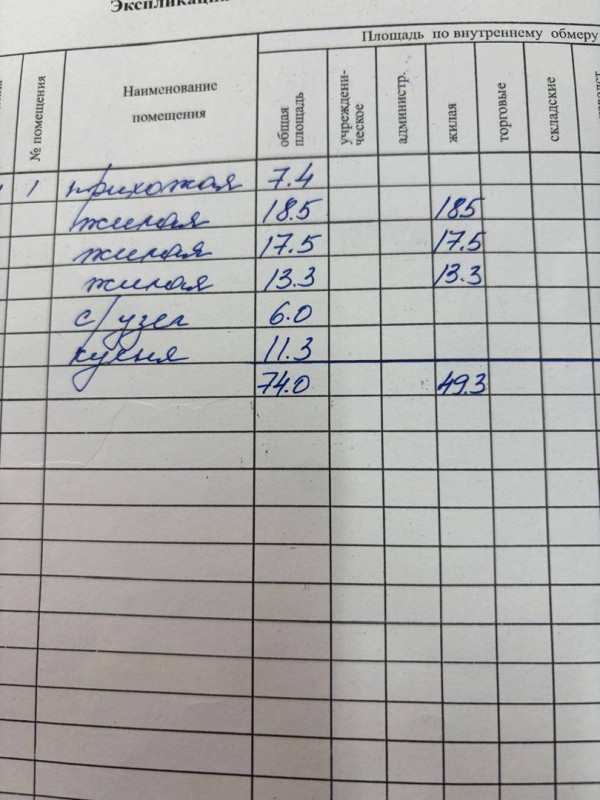 Экспликаци
Площадь по внутреннему обмеру
№ помещения
Наименование
помещения
общая
площадь
учреждени-
ческое
администр.
жилая
торговые
складские
1 прихожая 7.4
жилая 18.5 185
жилая 17.5 17.5
жилая 13.3 13.3
с/узел 6.0
кухня 11.3
74.0 49.3